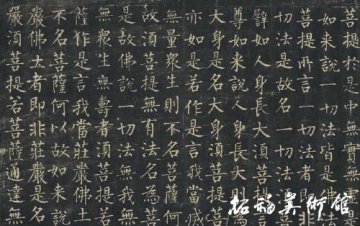 菩提於是中無實無
如來說一切法皆是佛法
菩提所言一切法者即非
切法是故名一切法須菩
譬如人身長大須菩提言
尊如來說人身長大則為
大身是名大身須菩提菩
亦如是若作是言我當滅
無量眾生則不名菩薩何
故須菩提無有法名為菩
是故佛說一切法無我無
無眾生無壽者須菩提若
薩作是言我當莊嚴佛土
不名菩薩何以故如來說
嚴佛土者即非莊嚴是名
嚴須菩提若菩薩通達無
美術館